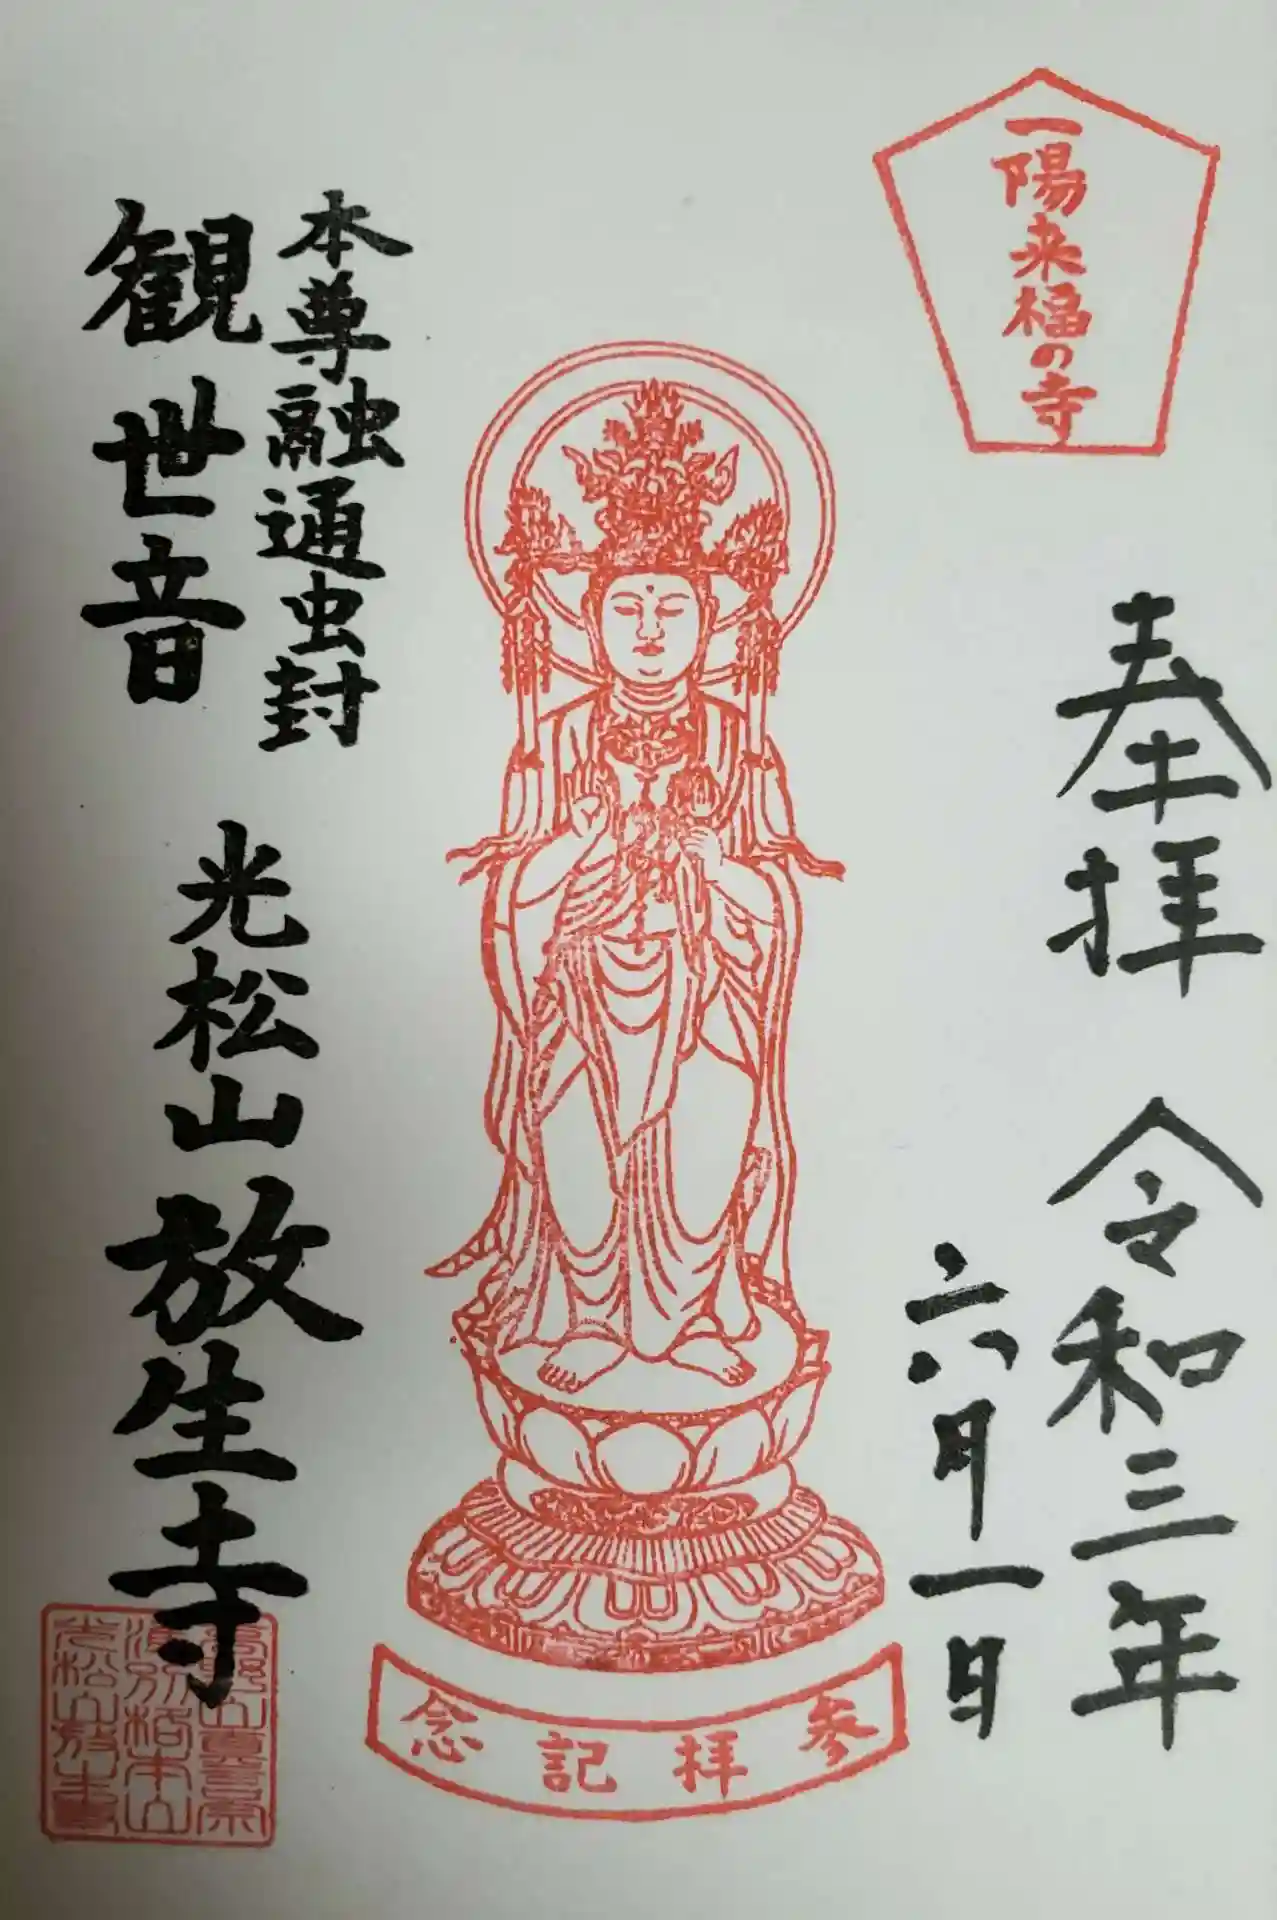 一陽来福の寺
奉拝 令和三年
六月十一日
本尊融通虫封
観世音
光松山放生寺
参拝記念